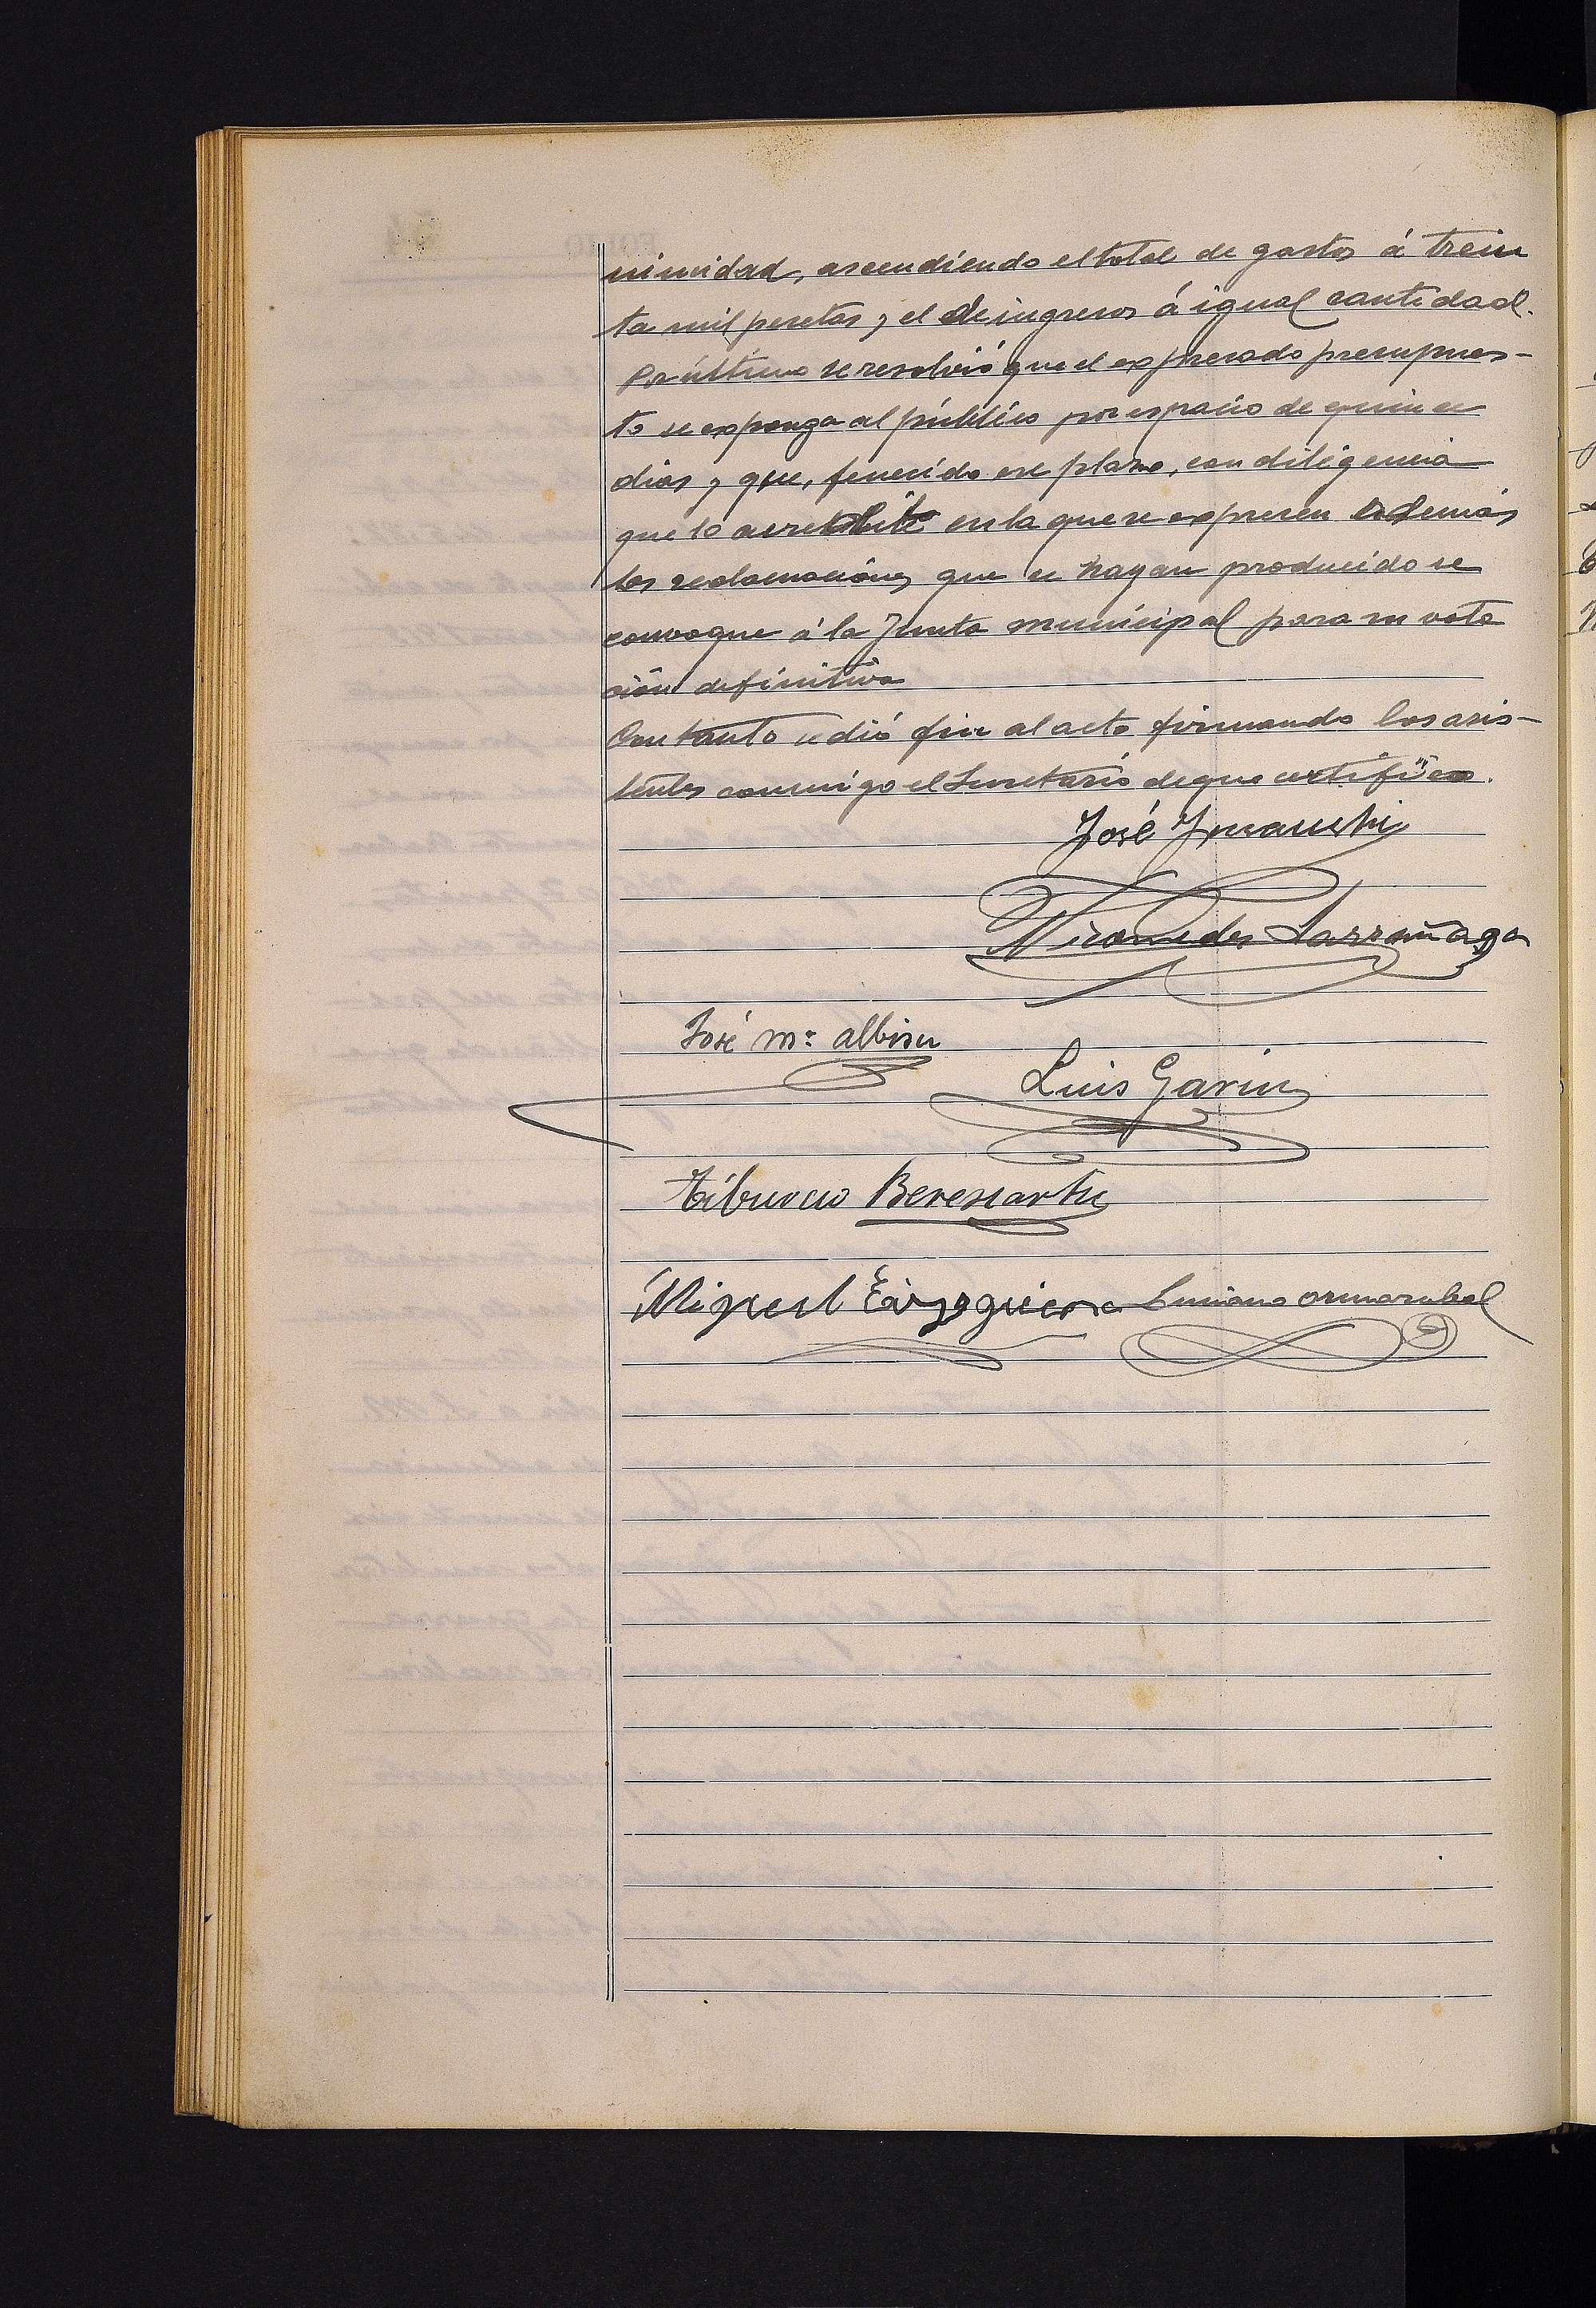 nimidad, ascendiendo el total de gastos á trein
ta mil pesetas y el de ingresos á igual cantidad.
Por último se resolvió que el expresado presupues-
to se exponga al público por espacio de quince
dias y que, fenecido ese plazo, con diligencia
que lo acredite en la que se expresen además
las reclamaciones que se hayan producido se
convoque á la Junta municipal para su vota
ción definitiva
Con tanto se dió fin al acto firmando los asis-
tentes conmigo el Secretario de que certifico.
José
Nicomedes Larrañaga
José Mª Albisu
Luis Garin
Tiburcio Beresiartu
Miguel